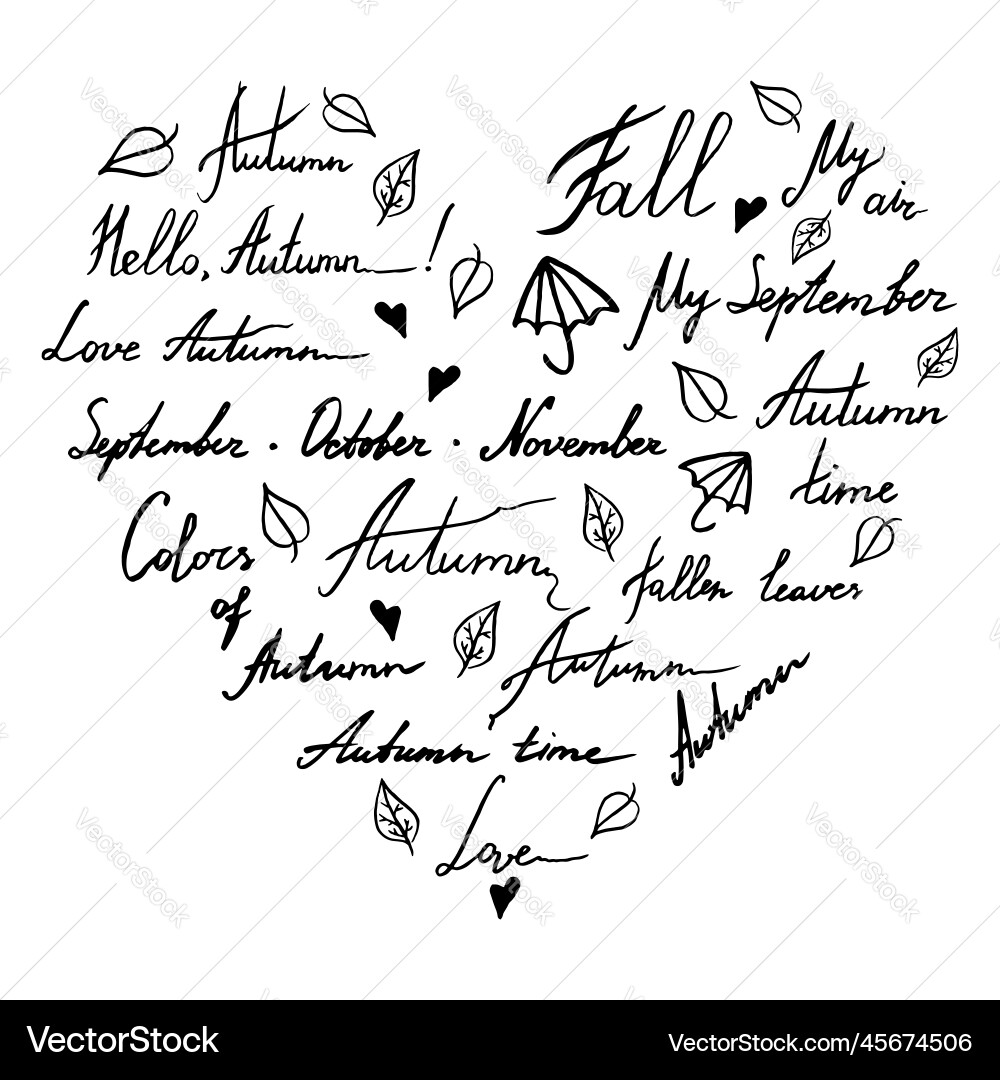 Autumn
Fall
My
air
Hello, Autumn !
My September
Love Autumn
Autumn
time
September · October · November
Colors
of
Autumn
Autumn
fallen leaves
Autumn
Autumn
Autumn time
Love
VectorStock
VectorStock.com/45674506